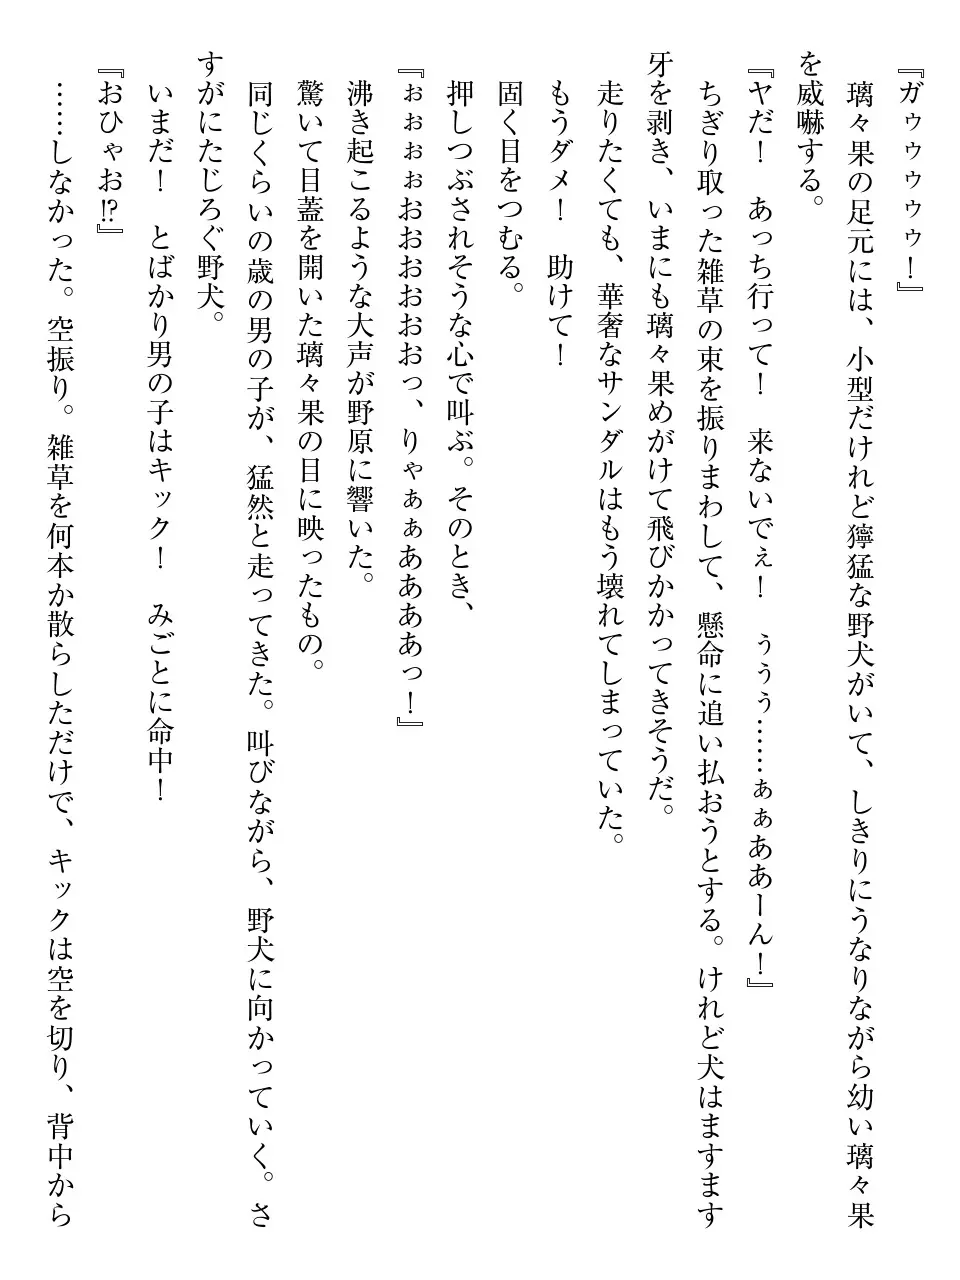 『ガゥゥゥゥゥ！』
　璃々果の足元には、小型だけれど獰猛な野犬がいて、しきりにうなりながら幼い璃々果
を威嚇する。
『ヤだ！　あっち行って！　来ないでぇ！　ぅぅぅ……ぁぁああーん！』
　ちぎり取った雑草の束を振りまわして、懸命に追い払おうとする。けれど犬はますます
牙を剥き、いまにも璃々果めがけて飛びかかってきそうだ。
　走りたくても、華奢なサンダルはもう壊れてしまっていた。
　もうダメ！　助けて！
　固く目をつむる。
　押しつぶされそうな心で叫ぶ。そのとき、
『ぉぉぉぉおおおおおおっ、りゃぁぁああああっ！』
　沸き起こるような大声が野原に響いた。
　驚いて目蓋を開いた璃々果の目に映ったもの。
　同じくらいの歳の男の子が、猛然と走ってきた。叫びながら、野犬に向かっていく。さ
すがにたじろぐ野犬。
　いまだ！　とばかり男の子はキック！　みごとに命中！
『おひゃお!?』
　……しなかった。空振り。雑草を何本か散らしただけで、キックは空を切り、背中から